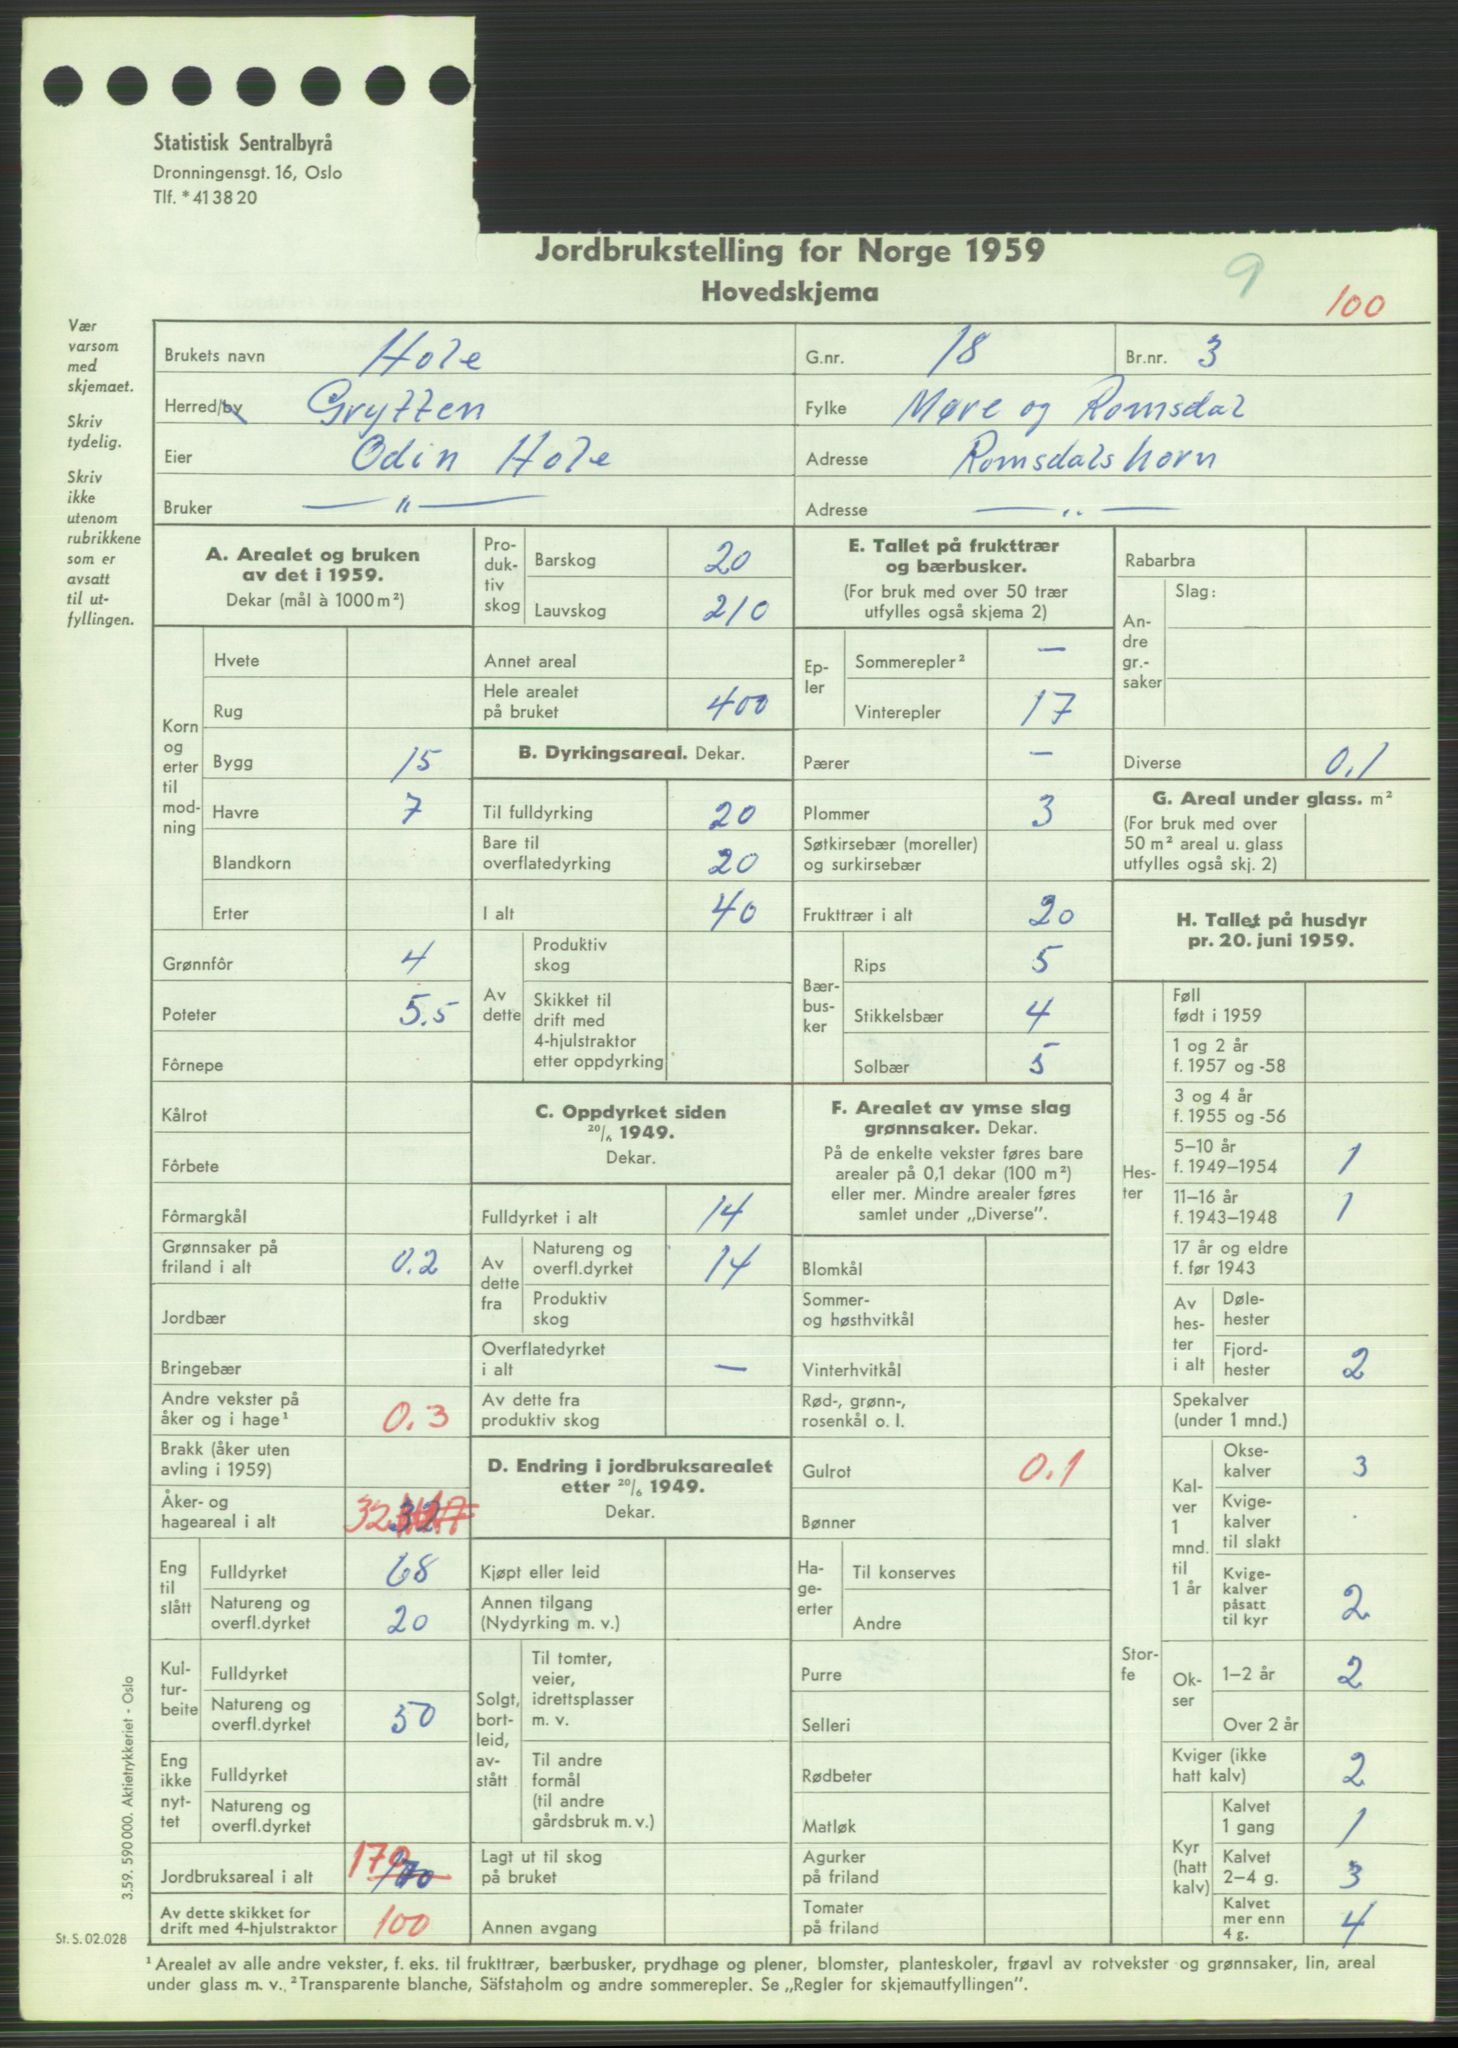 Statistisk Sentralbyrå
Dronningensgt. 16, Oslo
Tlf. * 41 38 20
Jordbrukstelling for Norge 1959
Hovedskjema
9
100
Vær
varsom
med
skjemaet.
Skriv
tydelig.
Skriv
ikke
utenom
rubrikkene
som er
avsatt
til ut-
fyllingen.
Brukets navn Hole G.nr. 18 Br.nr. 3
Herred/by Grytten Fylke Møre og Romsdal
Eier Odin Hole Adresse Romsdalshorn
Bruker — " — Adresse — " —
A. Arealet og bruken
av det i 1959.
Dekar (mål à 1000 m²)
Korn
og
erter
til
mod-
ning
Hvete
Rug
Bygg 15
Havre 7
Blandkorn
Erter
Grønnfôr 4
Poteter 5.5
Fôrnepe
Kålrot
Fôrbete
Fôrmargkål
Grønnsaker på
friland i alt 0.2
Jordbær
Bringebær
Andre vekster på
åker og i hage¹ 0.3
Brakk (åker uten
avling i 1959)
Åker- og
hageareal i alt 32 32
Eng
til
slått
Fulldyrket 68
Natureng og
overfl.dyrket 20
Kul-
tur-
beite
Fulldyrket
Natureng og
overfl.dyrket 50
Eng
ikke
nyt-
tet
Fulldyrket
Natureng og
overfl.dyrket
Jordbruksareal i alt 170 170
Av dette skikket for
drift med 4-hjulstraktor 100
Pro-
duk-
tiv
skog
Barskog 20
Lauvskog 210
Annet areal
Hele arealet
på bruket 400
B. Dyrkingsareal. Dekar.
Til fulldyrking 20
Bare til
overflatedyrking 20
I alt 40
Av
dette
Produktiv
skog
Skikket til
drift med
4-hjulstraktor
etter oppdyrking
C. Oppdyrket siden
20/6 1949.
Dekar.
Fulldyrket i alt 14
Av
dette
fra
Natureng og
overfl.dyrket 14
Produktiv
skog
Overflatedyrket
i alt —
Av dette fra
produktiv skog
D. Endring i jordbruksarealet
etter 20/6 1949.
Dekar.
Kjøpt eller leid
Annen tilgang
(Nydyrking m. v.)
Solgt,
bort-
leid,
av-
stått
Til tomter,
veier,
idrettsplasser
m. v.
Til andre
formål
(til andre
gårdsbruk m. v.)
Lagt ut til skog
på bruket
Annen avgang
E. Tallet på frukttrær
og bærbusker.
(For bruk med over 50 trær
utfylles også skjema 2)
Ep-
ler
Sommerepler² —
Vinterepler 17
Pærer —
Plommer 3
Søtkirsebær (moreller)
og surkirsebær
Frukttrær i alt 20
Bær-
bus-
ker
Rips 5
Stikkelsbær 4
Solbær 5
F. Arealet av ymse slag
grønnsaker. Dekar.
På de enkelte vekster føres bare
arealer på 0,1 dekar (100 m²)
eller mer. Mindre arealer føres
samlet under „Diverse".
Blomkål
Sommer-
og høsthvitkål
Vinterhvitkål
Rød-, grønn-,
rosenkål o. l.
Gulrot 0.1
Bønner
Ha-
ge-
erter
Til konserves
Andre
Purre
Selleri
Rødbeter
Matløk
Agurker
på friland
Tomater
på friland
Rabarbra
An-
dre
gr.-
saker
Slag:
Diverse 0.1
G. Areal under glass. m²
(For bruk med over
50 m² areal u. glass
utfylles også skj. 2)
H. Tallet på husdyr
pr. 20. juni 1959.
Hes-
ter
Føll
født i 1959
1 og 2 år
f. 1957 og -58
3 og 4 år
f. 1955 og -56
5–10 år
f. 1949–1954 1
11–16 år
f. 1943–1948 1
17 år og eldre
f. før 1943
Av
hes-
ter
i alt
Døle-
hester
Fjord-
hester 2
Stor-
fe
Spekalver
(under 1 mnd.)
Kal-
ver
1
mnd.
til
1 år
Okse-
kalver 3
Kvige-
kalver
til slakt
Kvige-
kalver
påsatt
til kyr 2
Ok-
ser
1–2 år 2
Over 2 år
Kviger (ikke
hatt kalv) 2
Kyr
(hatt
kalv)
Kalvet
1 gang 1
Kalvet
2–4 g. 3
Kalvet
mer enn
4 g. 4
3.59. 590 000. Aktietrykkeriet - Oslo
St. S. 02.028
¹ Arealet av alle andre vekster, f. eks. til frukttrær, bærbusker, prydhage og plener, blomster, planteskoler, frøavl av rotvekster og grønnsaker, lin, areal
under glass m. v. ² Transparente blanche, Säfstaholm og andre sommerepler. Se „Regler for skjemautfyllingen".